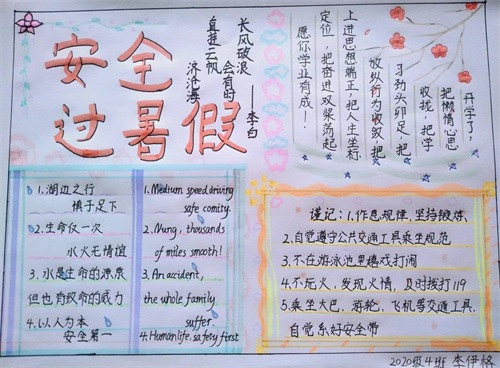 安全
过暑假
长风破浪
会有时
直挂云帆
济沧海
——李白
开学了，
把懒惰心思
收拢，把学
习劲头卯足，把
放纵行为收敛，把
上进思想端正，把人生坐标
定位，把奋进双桨荡起
愿你学业有成！
1.湖边之行
慎于足下
2.生命仅一次
水火无情谊
3.水是生命的源泉
但也有致命的威力
4.以人为本
安全第一
1.Medium speed driving
safe comity.
2.Mung, thousands
of miles smooth!
3.An accident,
the whole family
suffer.
4.Human life, safety first
谨记：1.作息规律，坚持锻炼。
2.自觉遵守公共交通工具乘坐规范
3.不在游泳池里嬉戏打闹
4.不玩火，发现火情，及时拨打119
5.乘坐大巴、游轮、飞机等交通工具，
自觉系好安全带
2020级4班 李伊格